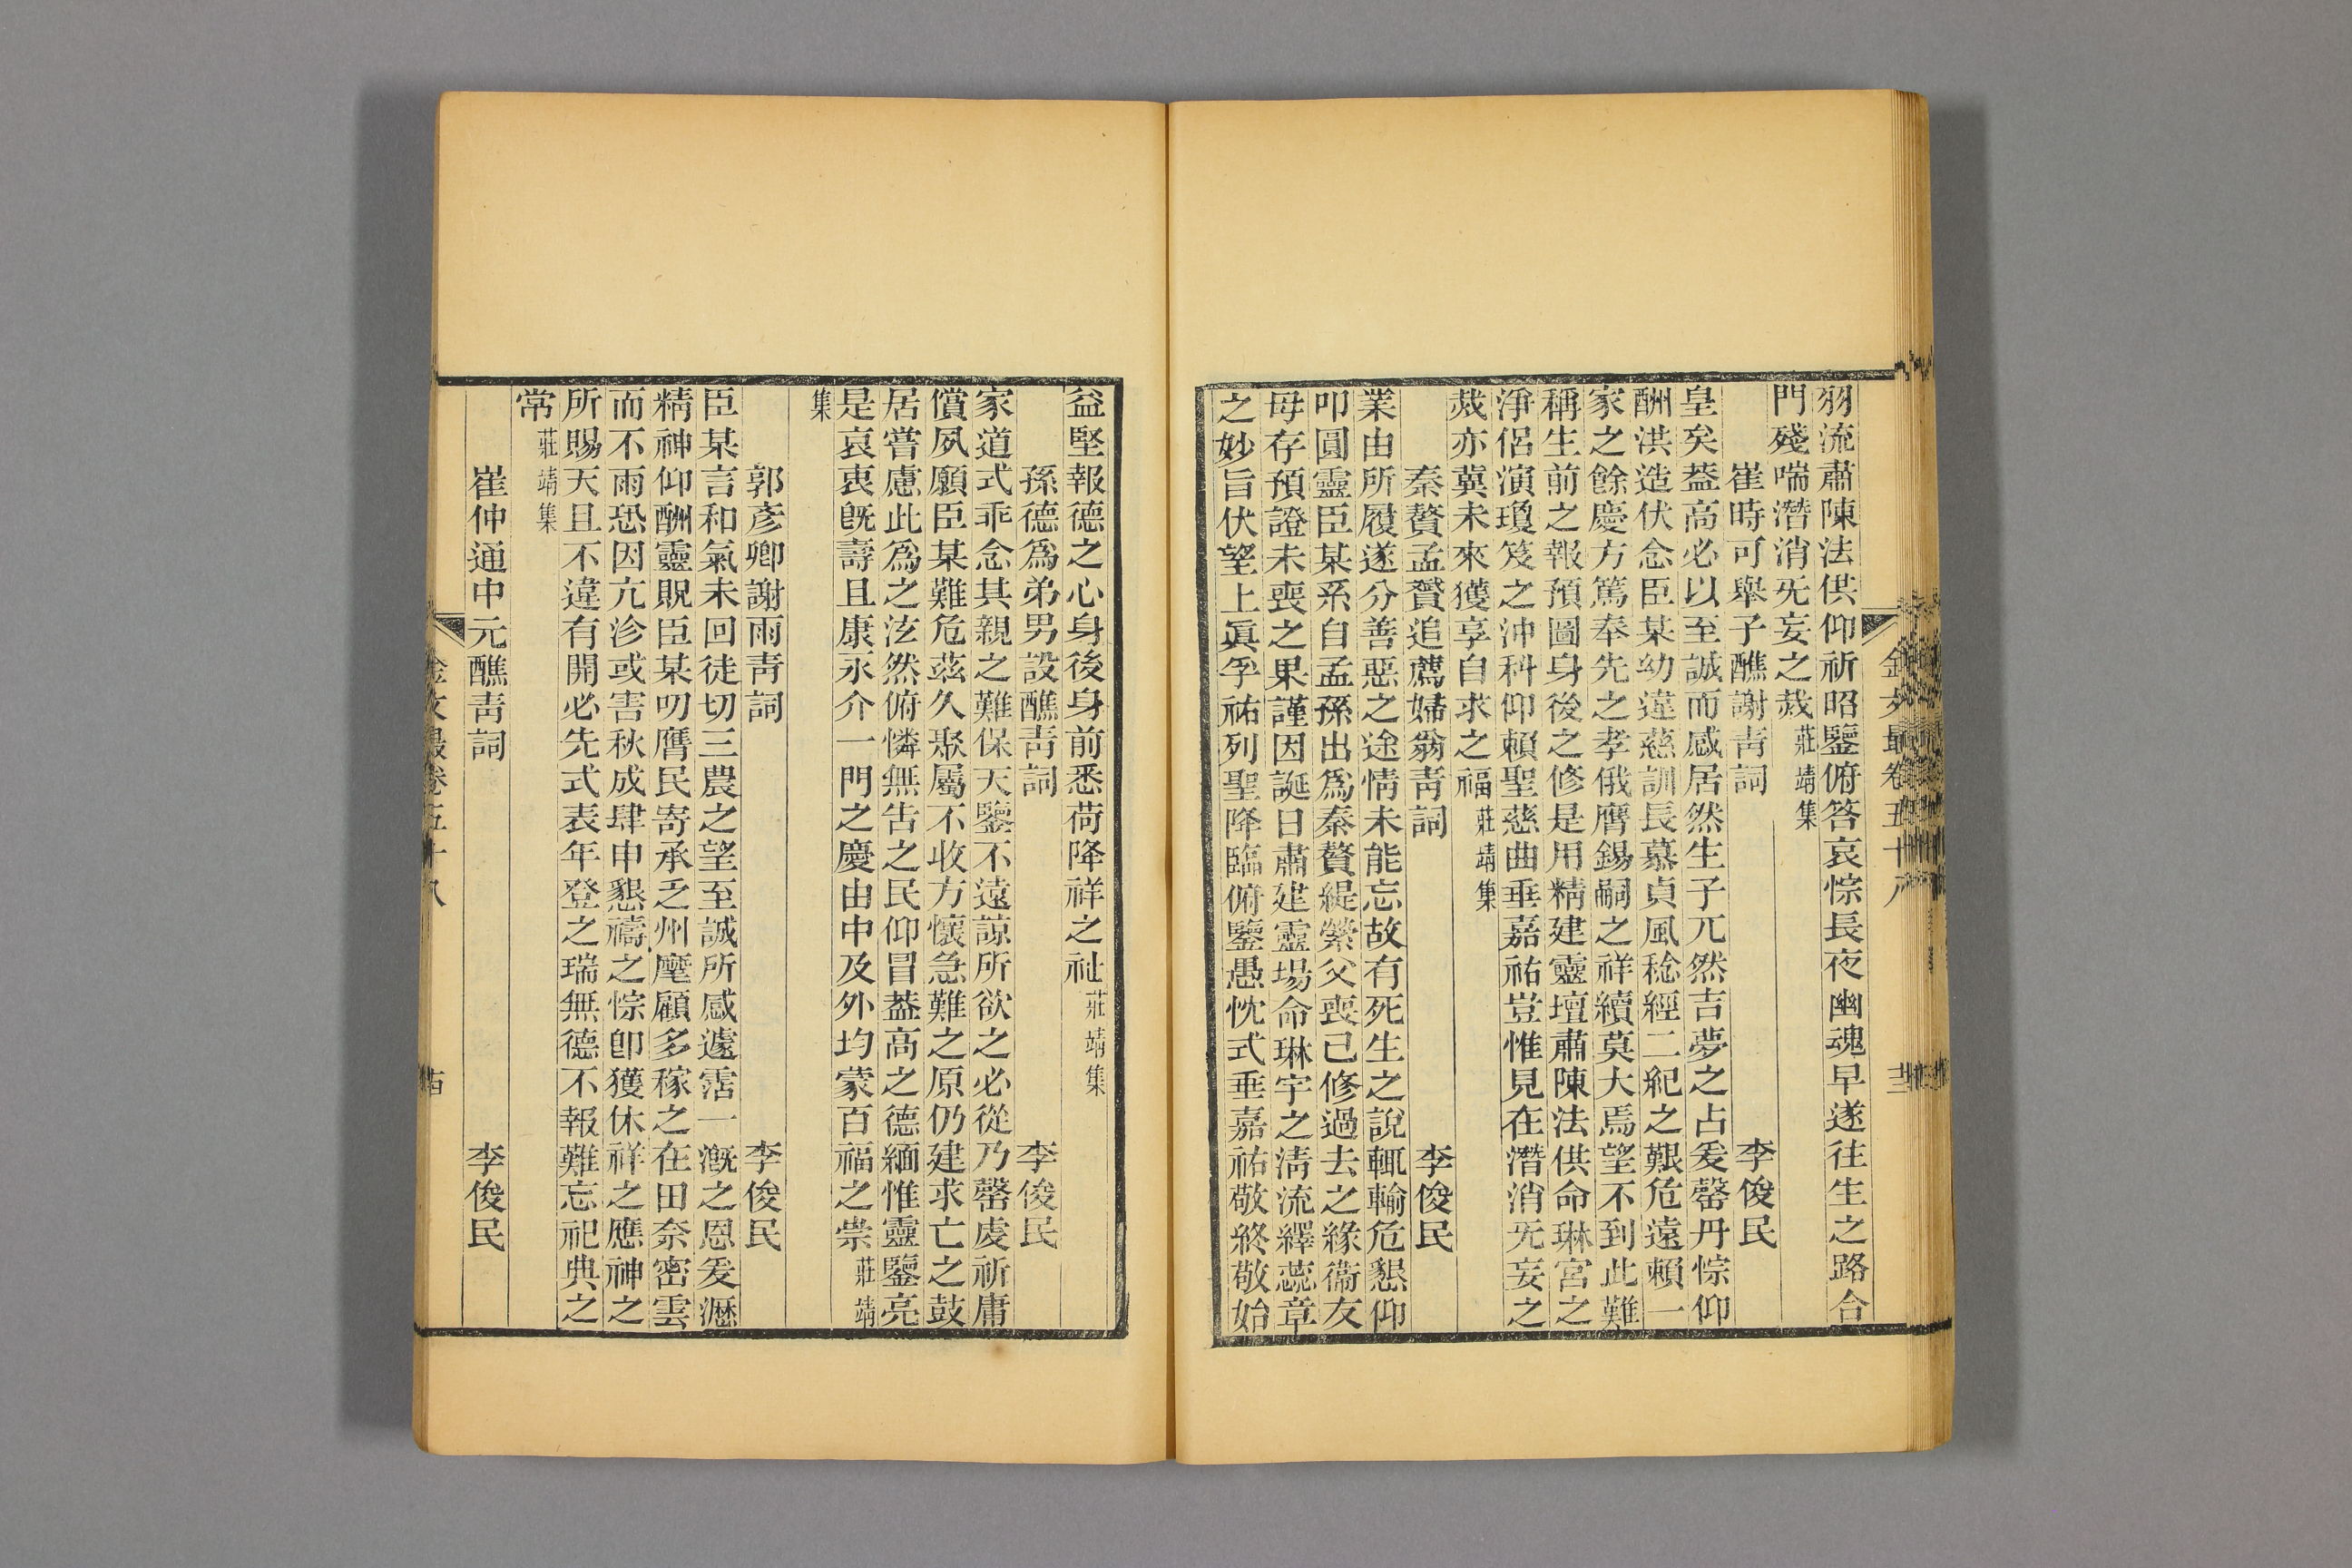 金文最卷五十八
羽流肅陳法供仰祈昭鑒俯答哀悰長夜幽魂早遂往生之路合
門殘喘潛消旡妄之烖莊靖集
崔時可舉子醮謝靑詞 李俊民
皇矣葢高必以至誠而感居然生子兀然吉夢之占爰罄丹悰仰
酬洪造伏念臣某幼違慈訓長慕貞風稔經二紀之艱危遠賴一
家之餘慶方篤奉先之孝俄膺錫嗣之祥續莫大焉望不到此難
稱生前之報預圖身後之修是用精建靈壇肅陳法供命琳宮之
淨侶演瓊笈之沖科仰賴聖慈曲垂嘉祐豈惟見在潛消旡妄之
烖亦冀未來獲享自求之福莊靖集
秦贇孟贇追薦婦翁靑詞 李俊民
業由所履遂分善惡之途情未能忘故有死生之說輒輸危懇仰
叩圓靈臣某系自孟孫出爲秦贅緹縈父喪己修過去之緣衞友
母存預證未喪之果謹因誕日肅建靈場命琳宇之淸流繹蕊章
之妙旨伏望上眞孚祐列聖降臨俯鑒愚忱式垂嘉祐敬終敬始
益堅報德之心身後身前悉荷降祥之祉莊靖集
孫德爲弟男設醮靑詞 李俊民
家道式乖念其親之難保天鑒不遠諒所欲之必從乃罄虔祈庸
償夙願臣某難危茲久聚屬不收方懷急難之原仍建求亡之鼓
居嘗慮此爲之泫然俯憐無告之民仰冒葢高之德緬惟靈鑒亮
是哀衷旣壽且康永介一門之慶由中及外均蒙百福之崇莊靖
集
郭彥卿謝雨靑詞 李俊民
臣某言和氣未回徒切三農之望至誠所感遽霑一漑之恩爰瀝
精神仰酬靈貺臣某叨膺民寄承乏州麾顧多稼之在田奈密雲
而不雨恐因亢沴或害秋成肆申懇禱之悰卽獲休祥之應神之
所賜天且不違有開必先式表年登之瑞無德不報難忘祀典之
常莊靖集
崔仲通中元醮靑詞 李俊民
金文最卷五十八